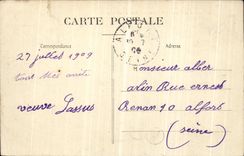 CARTE POSTALE
Correspondance
Adresse
ALFORT
27 juillet 1909
tout mes amitié
veuve Lassus
Monsieur allier
Rue ernest
Renan 10 alfort
(Seine)